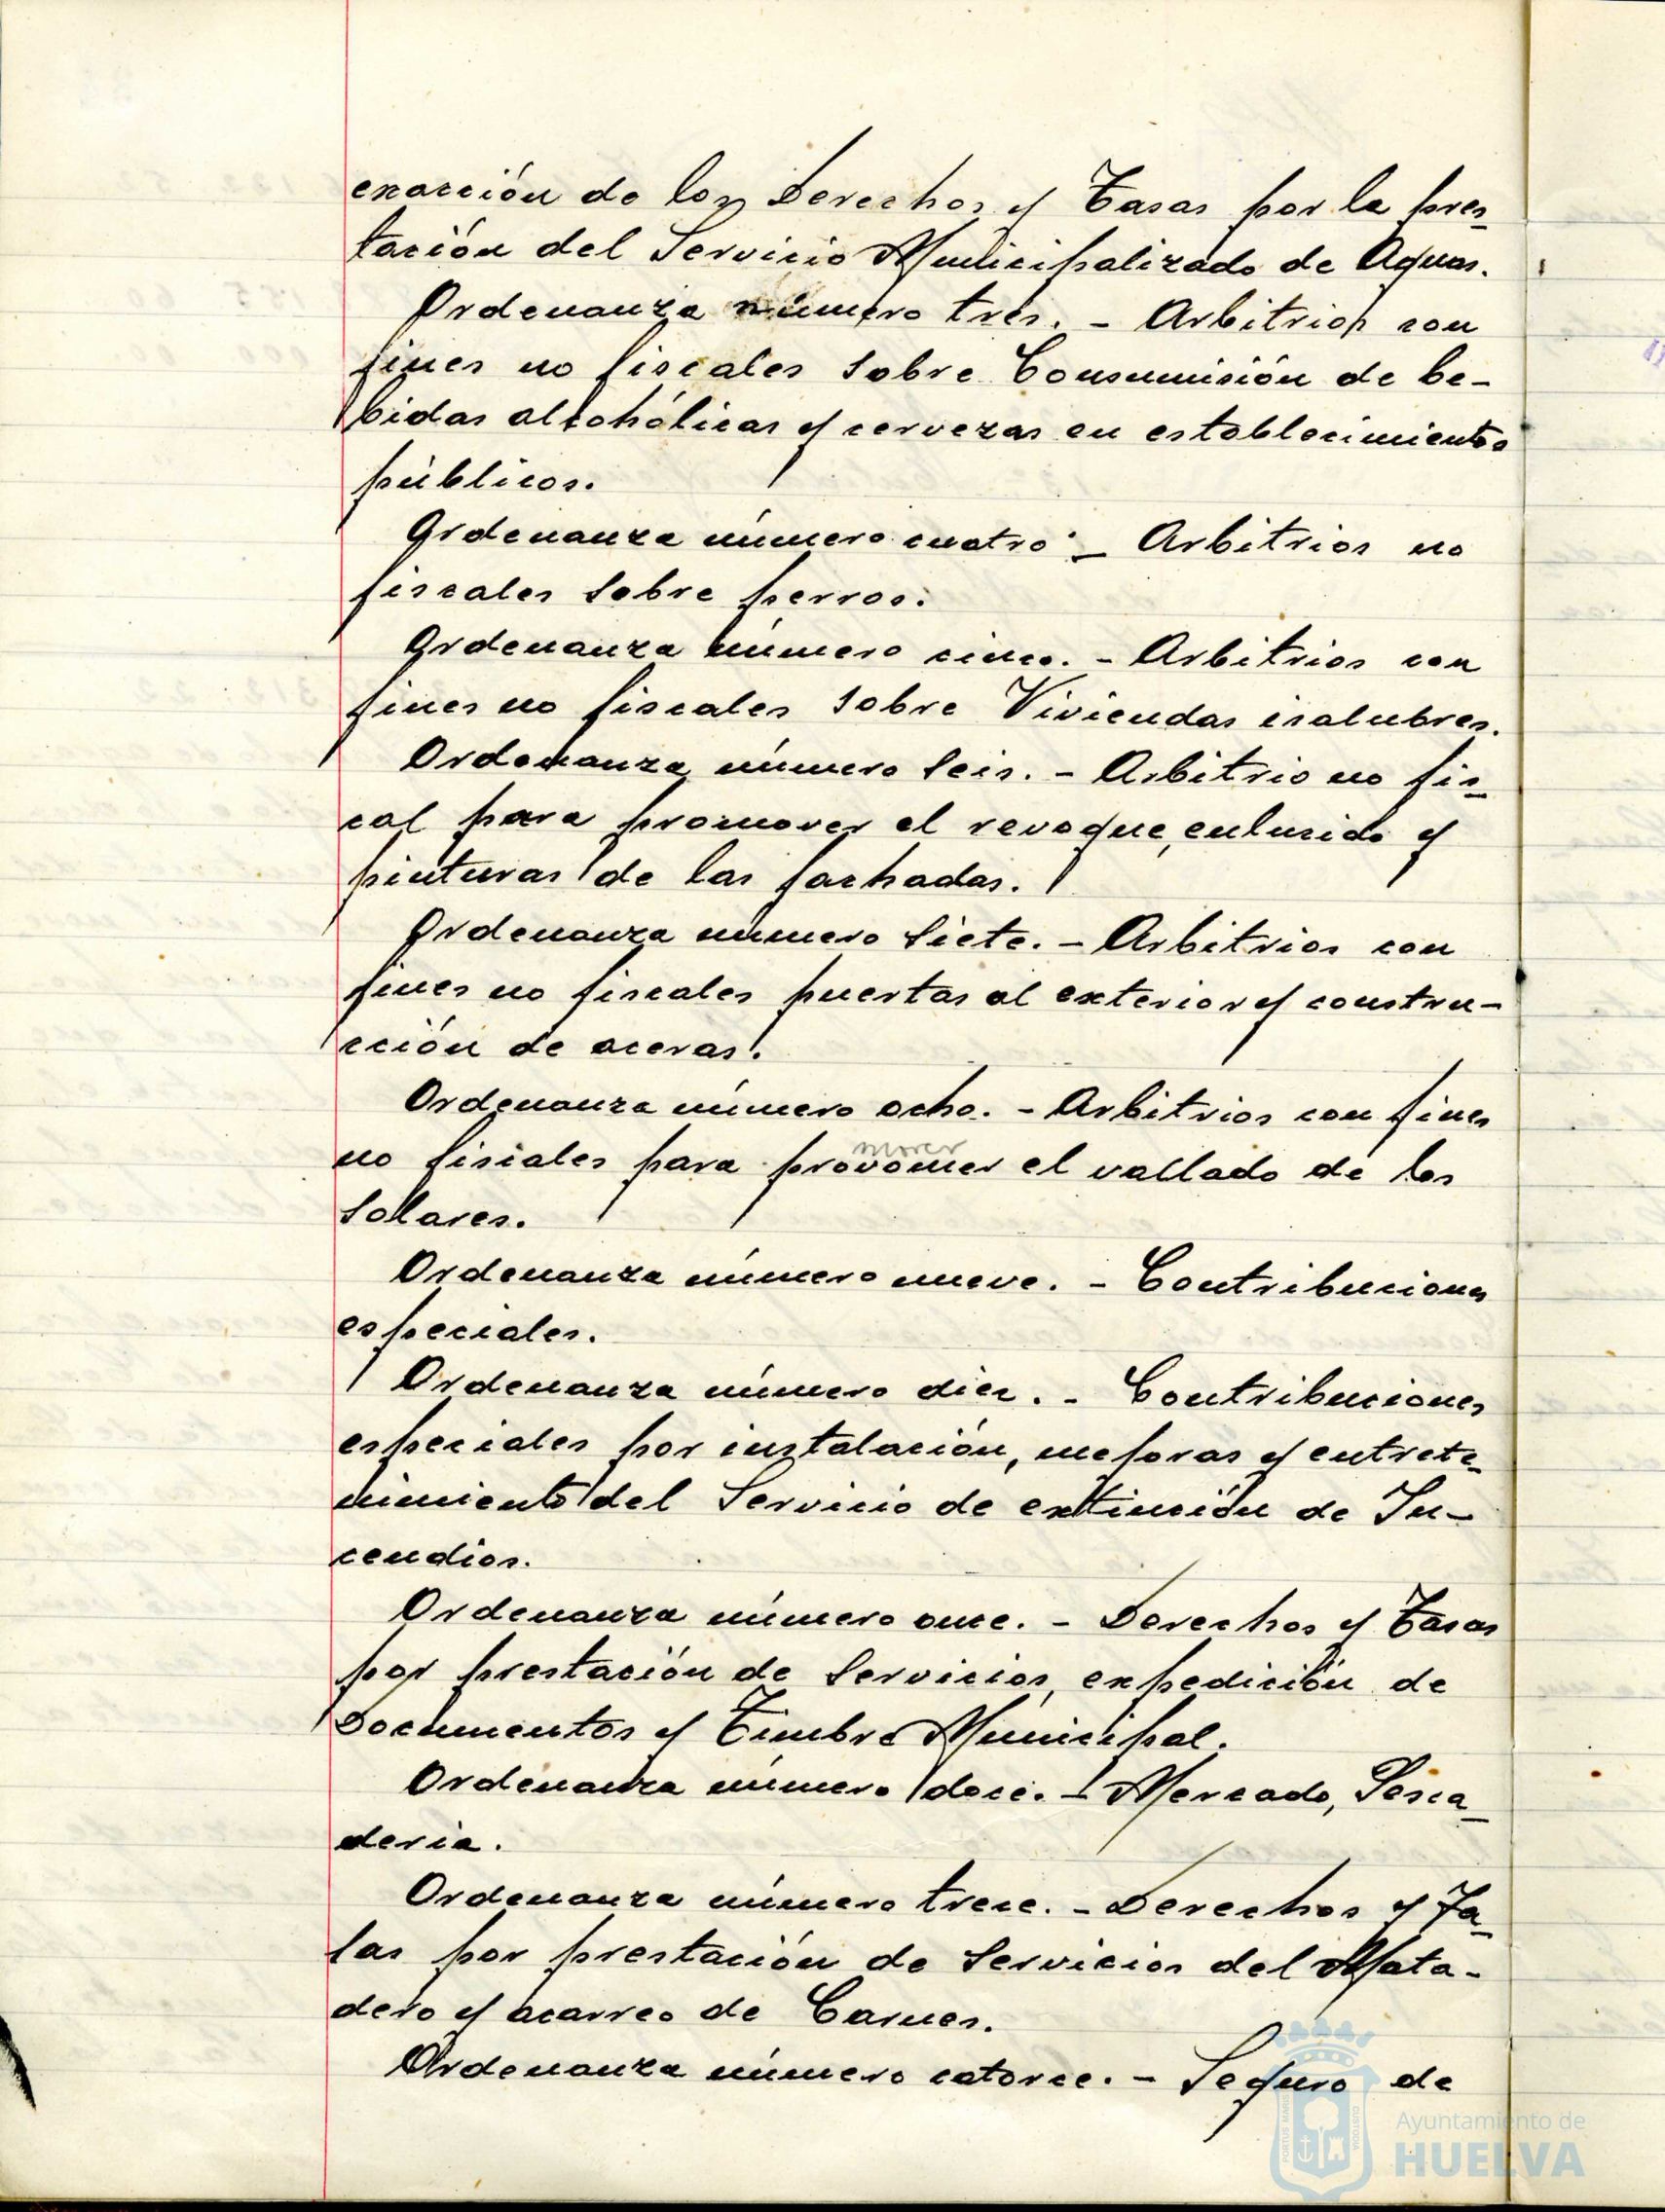 exacción de los Derechos y Tasas por la pres-
tación del Servicio Municipalizado de Aguas.
Ordenanza número tres. - Arbitrios con
fines no fiscales sobre Consumisión de be-
bidas alcohólicas y cervezas en establecimientos
públicos.
Ordenanza número cuatro. - Arbitrios no
fiscales sobre perros.
Ordenanza número cinco. - Arbitrios con
fines no fiscales sobre Viviendas isalubres.
Ordenanza número seis. - Arbitrio no fis-
cal para promover el revoque, enlucido y
pinturas de las fachadas.
Ordenanza número siete. - Arbitrios con
fines no fiscales puertas al exterior y constru-
cción de aceras.
Ordenanza número ocho. - Arbitrios con fines
mover
no fisiales para provomer el vallado de los
solares.
Ordenanza número nueve. - Contribuciones
especiales.
Ordenanza número diez. - Contribuciones
especiales por instalación, mejoras y entrete-
nimiento del Servicio de extinción de In-
cendios.
Ordenanza número once. - Derechos y Tasas
por prestación de Servicios, expedición de
Documentos y Timbre Municipal.
Ordenanza número doce. - Mercado, Pesca-
deria.
Ordenanza número trece. - Derechos y Ta-
sas por prestación de Servicios del Mata-
dero y acarreo de Carnes.
Ordenanza número catorce. - Seguro de
Ayuntamiento de
HUELVA